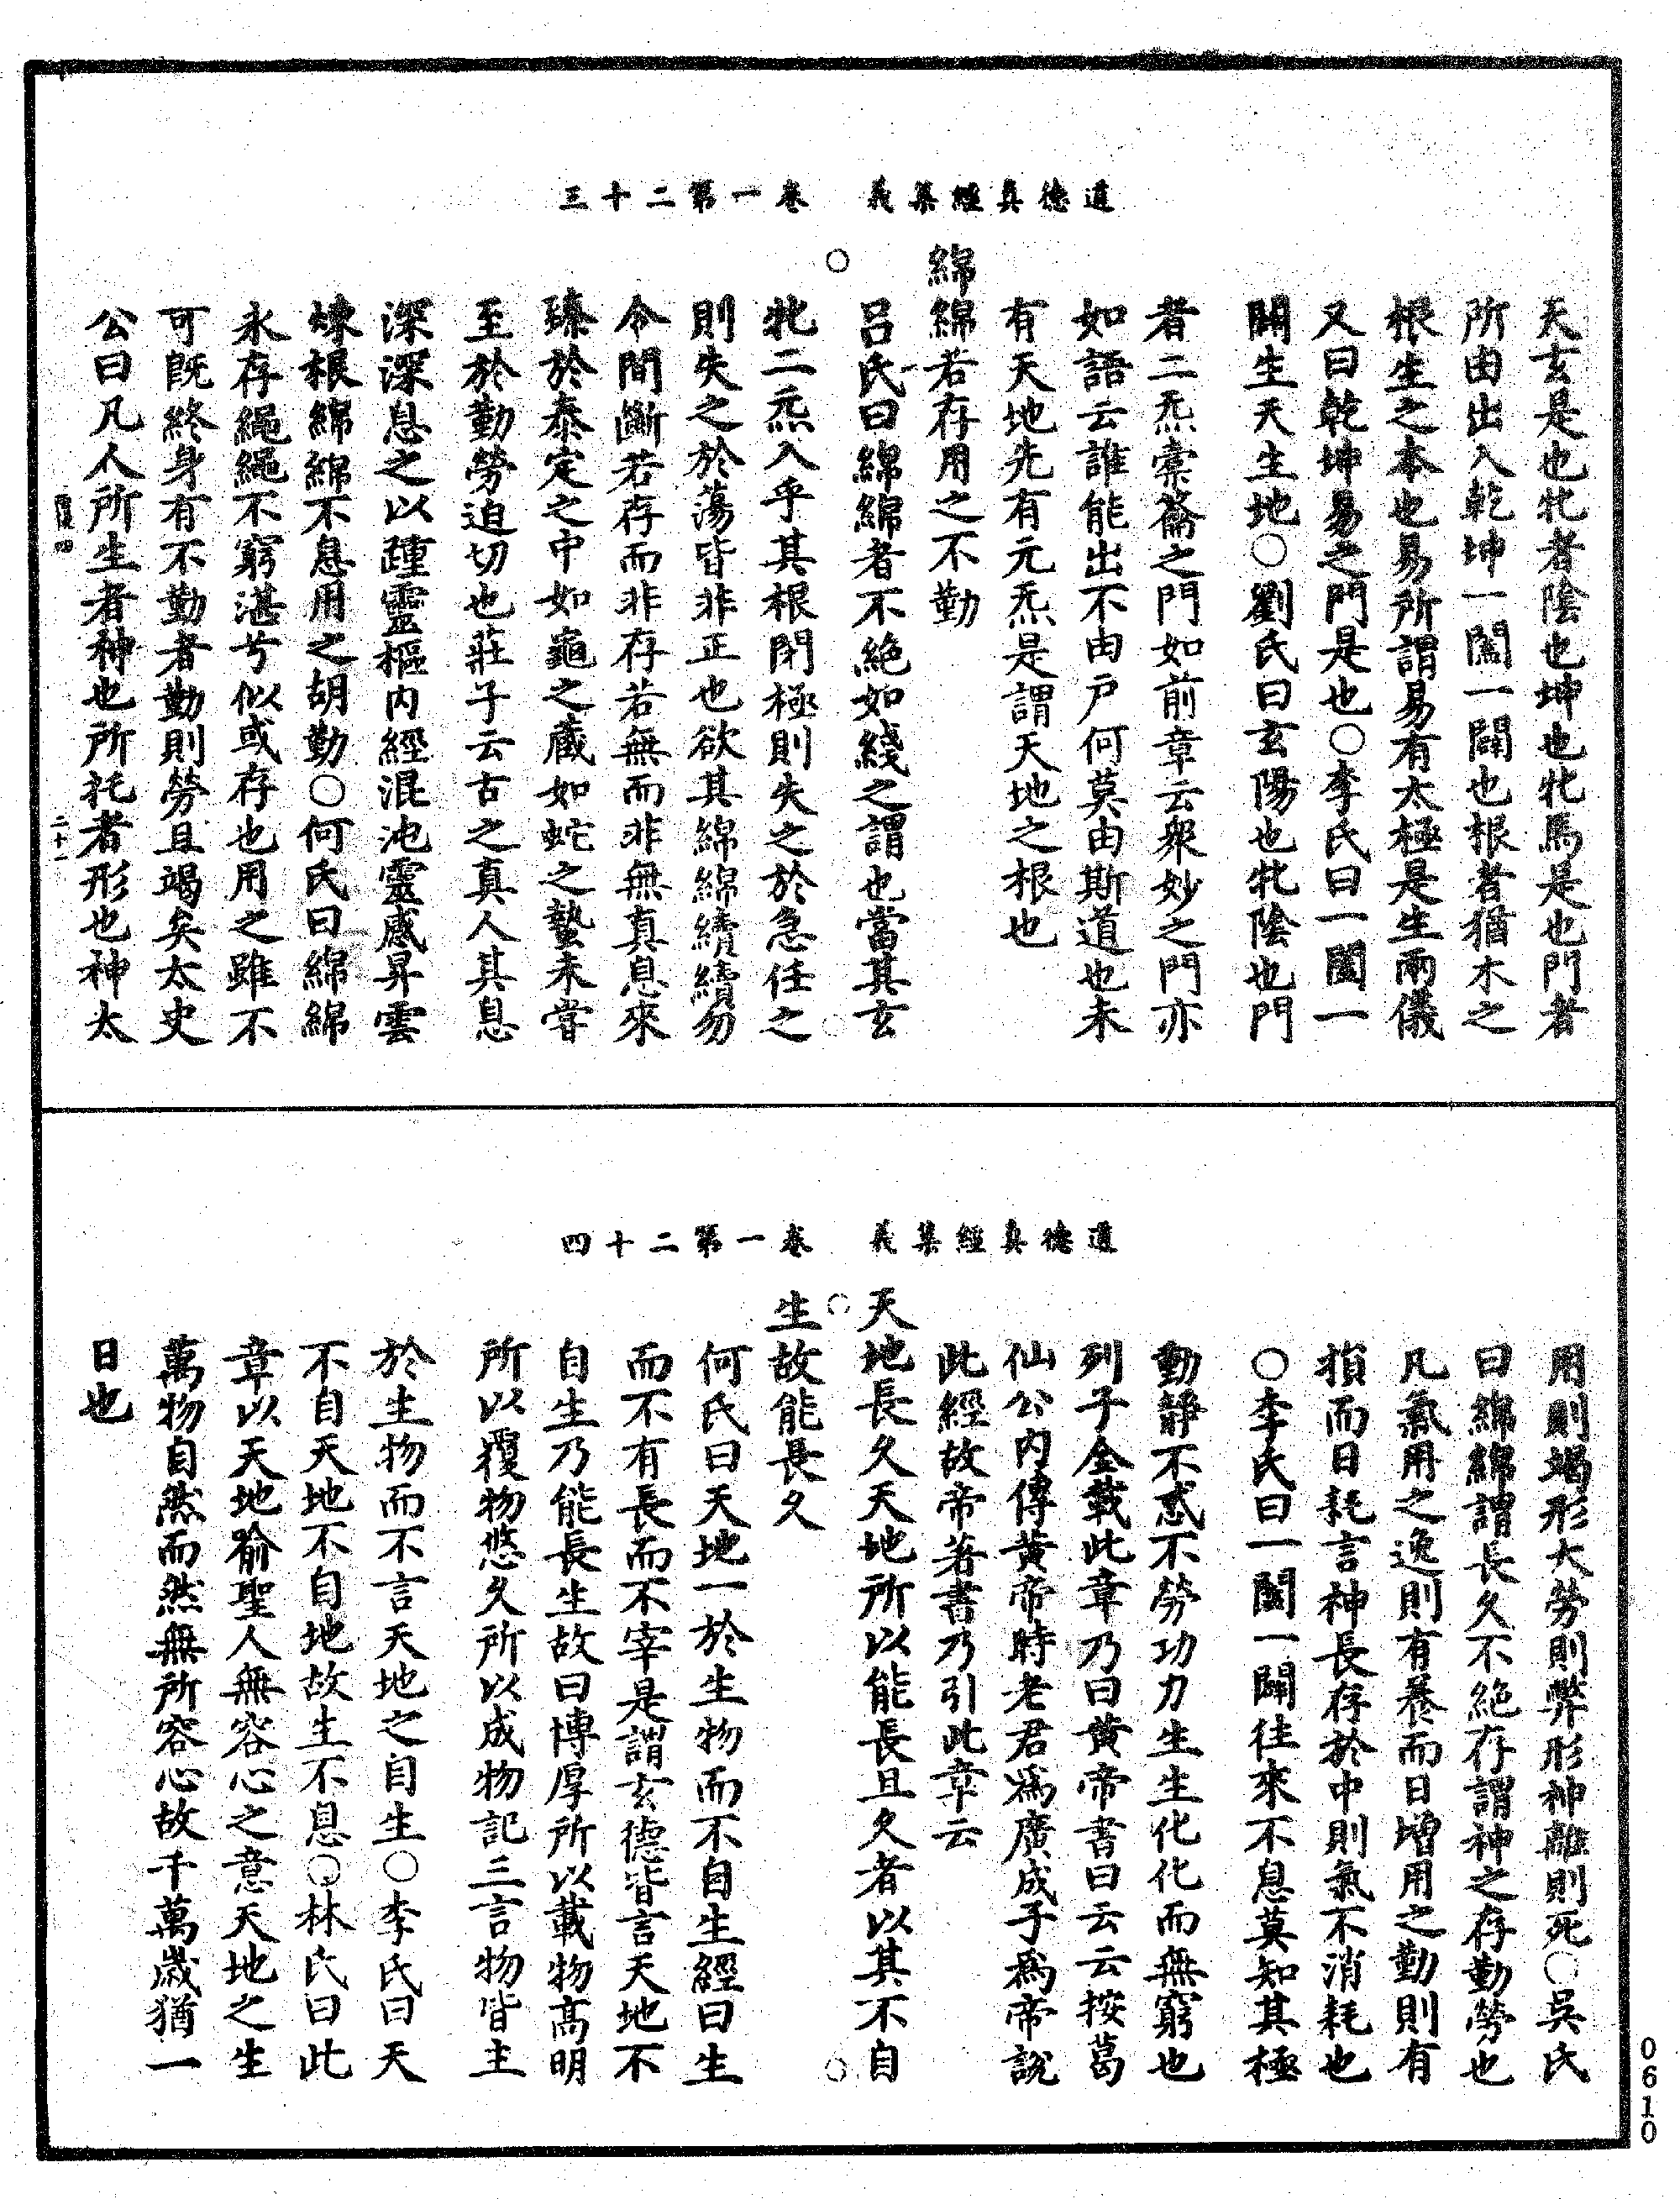 道德真經集義　卷一第二十三
天玄是也牝者陰也坤也牝馬是也門者
所由出入乾坤一闔一闢也根者猶木之
根生之本也易所謂易有太極是生兩儀
又曰乾坤易之門是也○李氏曰一闔一
闢生天生地○劉氏曰玄陽也牝陰也門
者二炁橐籥之門如前章云衆妙之門亦
如語云誰能出不由戶何莫由斯道也未
有天地先有元炁是謂天地之根也
綿綿若存用之不勤
○
呂氏曰綿綿者不絕如綫之謂也當其玄
牝二炁入乎其根閉極則失之於急任之
則失之於蕩皆非正也欲其綿綿續續勿
令間斷若存而非存若無而非無真息來
臻於泰定之中如龜之藏如蛇之蟄未嘗
至於勤勞迫切也莊子云古之真人其息
深深息之以踵靈樞內經混沌靈感昇雲
煉根綿綿不息用之胡勤○何氏曰綿綿
永存繩繩不窮湛兮似或存也用之雖不
可既終身有不勤者勤則勞且竭矣太史
公曰凡人所生者神也所托者形也神太
二十一
道德真經集義　卷一第二十四
用則竭形大勞則弊形神離則死○吳氏
曰綿綿謂長久不絕存謂神之存勤勞也
凡氣用之逸則有養而日增用之勤則有
損而日耗言神長存於中則氣不消耗也
○李氏曰一闔一闢往來不息莫知其極
動靜不忒不勞功力生生化化而無窮也
列子全載此章乃曰黃帝書曰云云按葛
仙公內傳黃帝時老君爲廣成子爲帝說
此經故帝著書乃引此章云
天地長久天地所以能長且久者以其不自
○
○
生故能長久
何氏曰天地一於生物而不自生經曰生
而不有長而不宰是謂玄德皆言天地不
自生乃能長生故曰博厚所以載物高明
所以覆物悠久所以成物記三言物皆主
於生物而不言天地之自生○李氏曰天
不自天地不自地故生不息○林氏曰此
章以天地喻聖人無容心之意天地之生
萬物自然而然無所容心故千萬歲猶一
日也
0610